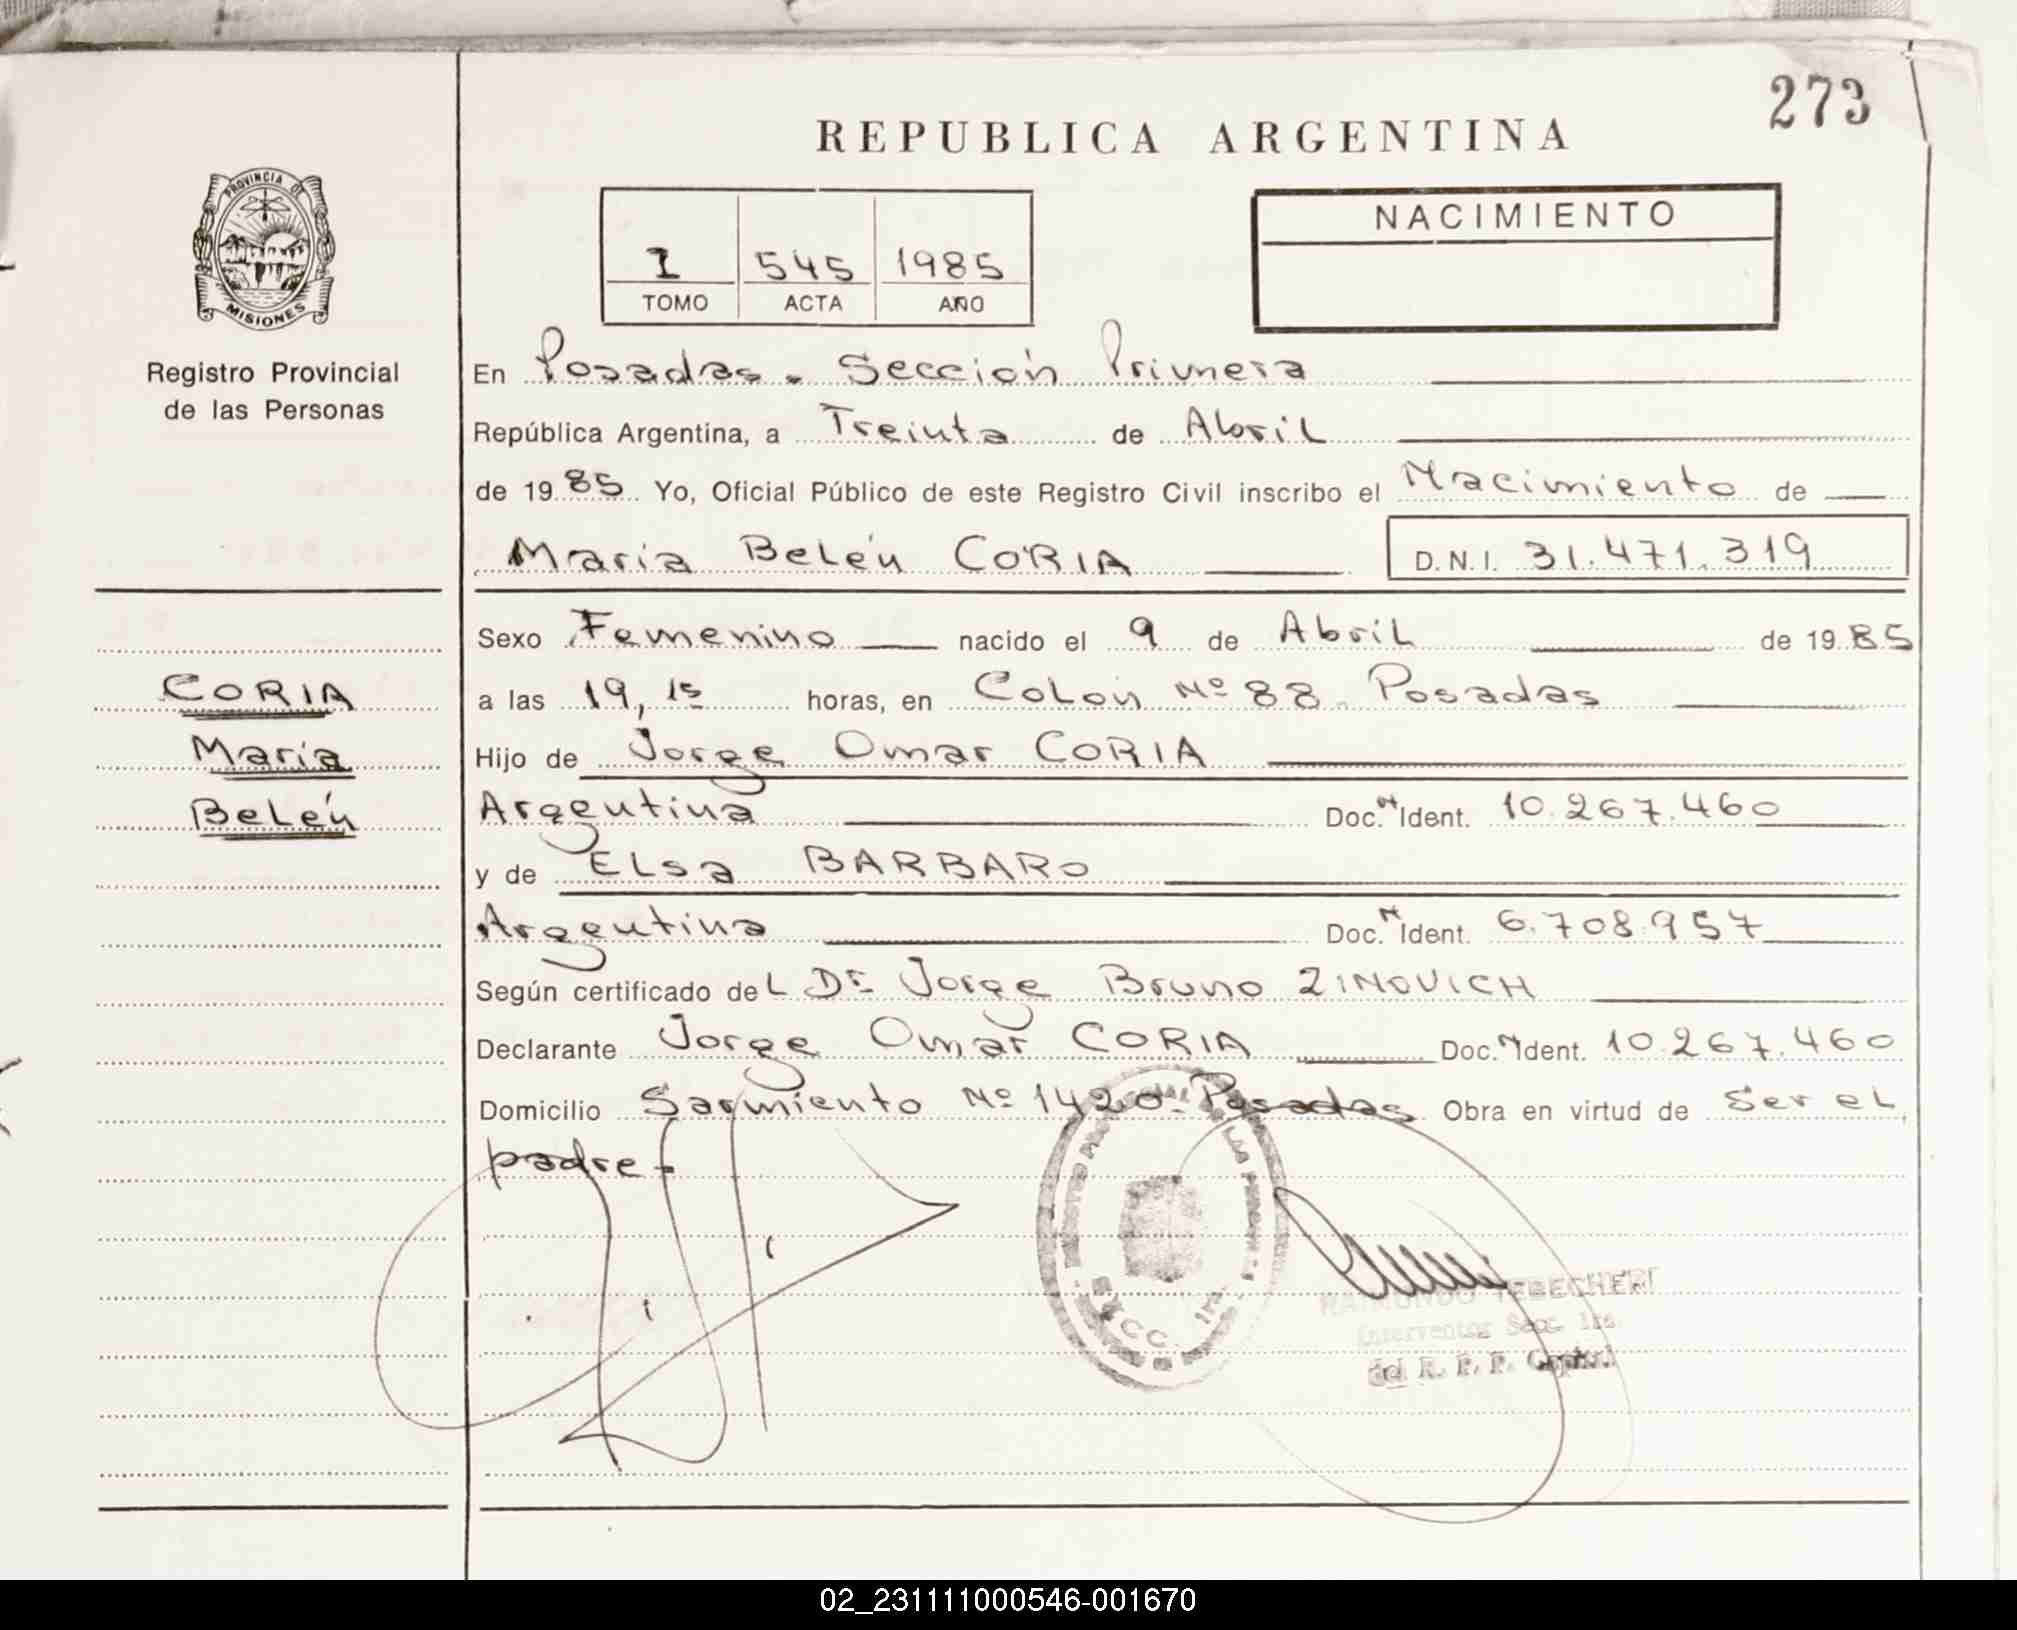 273
REPUBLICA ARGENTINA
PROVINCIA DE
MISIONES
Registro Provincial
de las Personas
I 545 1985
TOMO ACTA AÑO
NACIMIENTO
En Posadas. Sección Primera
República Argentina, a Treinta de Abril
de 1985 Yo, Oficial Público de este Registro Civil inscribo el Nacimiento de
María Belén CORIA D.N.I. 31.471.319
Sexo Femenino nacido el 9 de Abril de 1985
a las 19,15 horas, en Colón Nº 88. Posadas
Hijo de Jorge Omar CORIA
Argentina Doc. Nº Ident. 10.267.460
y de Elsa BARBARO
Argentina Doc. Nº Ident. 6.708.957
Según certificado del Dr Jorge Bruno ZINOVICH
Declarante Jorge Omar CORIA Doc. Nº Ident. 10.267.460
Domicilio Sarmiento Nº 1420. Posadas Obra en virtud de Ser el
padre.
CORIA
María
Belén
SECC. 1ra.
RAIMUNDO TEBECHERI
Interventor Secc. 1ra.
del R. P. P. Capital
02_231111000546-001670